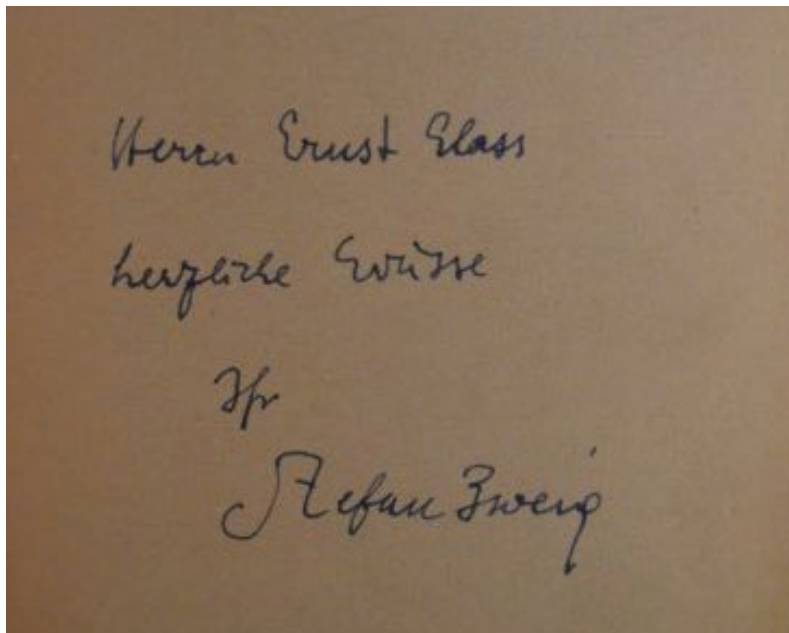 Herrn Ernst Glass
herzliche Grüsse
Ihr
Stefan Zweig